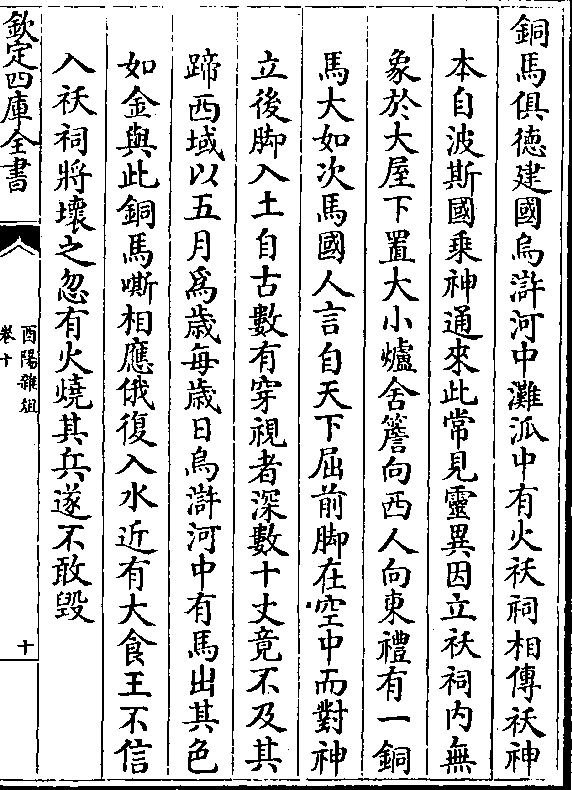 銅馬俱徳建國烏滸河中灘泒中有火祅祠相傳祅神
本自波斯國乗神通來此常見靈異因立祅祠内無
象於大屋下置大小爐舍簷向西人向東禮有一銅
馬大如次馬國人言自天下屈前脚在空中而對神
立後脚入土自古數有穿視者深數十丈竟不及其
蹄西域以五月為歳每歳日烏滸河中有馬出其色
如金與此銅馬嘶相應俄復入水近有大食王不信
入祅祠將壞之忽有火燒其兵遂不敢毀
欽定四庫全書
酉陽雜俎
卷十
十